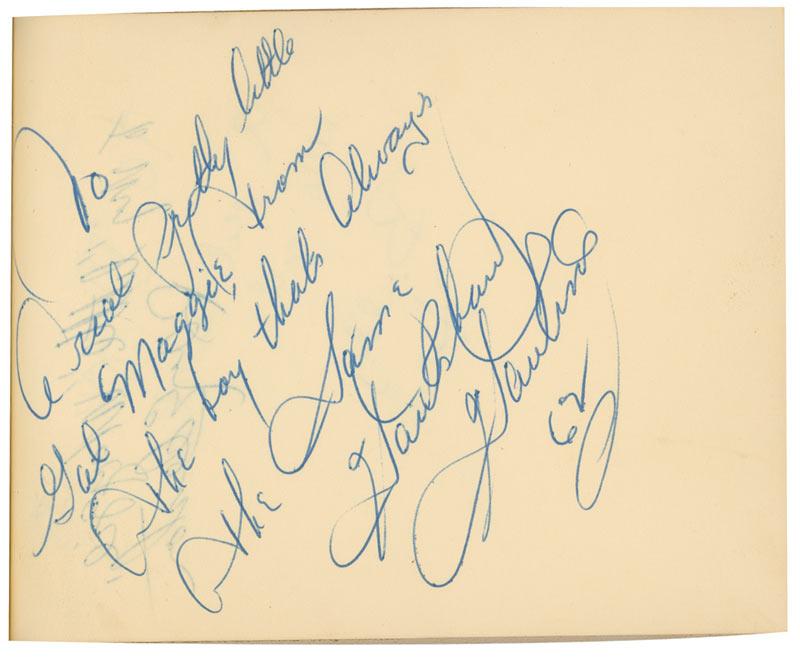 To
A real Pretty little
Gal Maggie, from
The boy thats Always
The Same
Hawkshaw
Hawkins
62